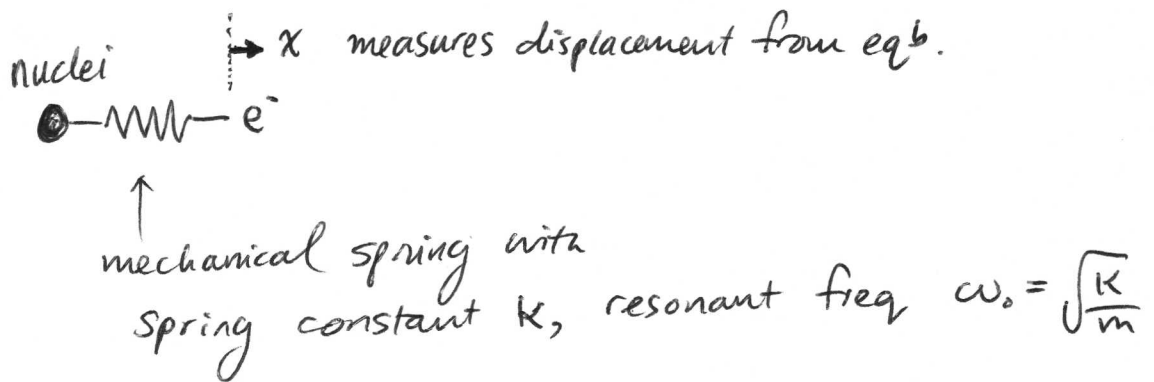 x measures displacement from eqb.
nuclei
e⁻
mechanical spring with
spring constant k, resonant freq ω₀ = √(k/m)